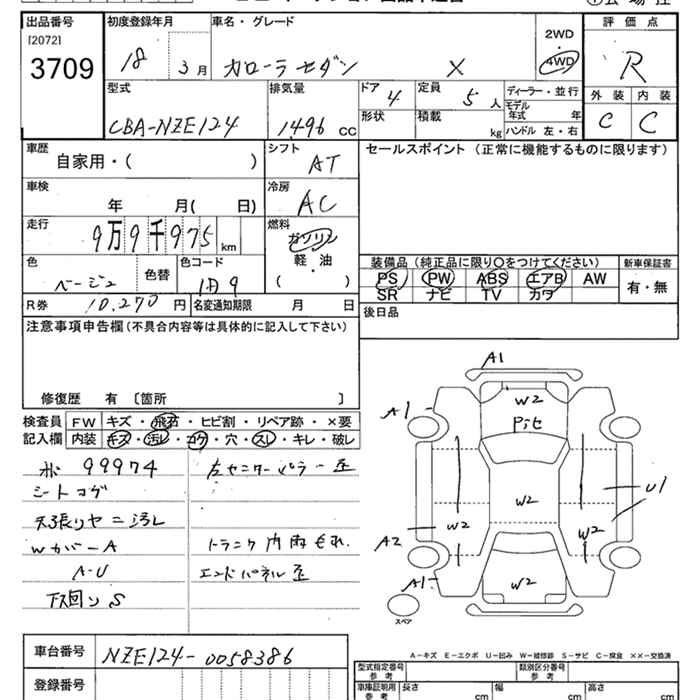 出品番号 初度登録年月 車名・グレード 評価点
[2072]
3709
18 3月 カローラセダン X
2WD
4WD
R
型式 排気量 ドア 定員 ディーラー・並行 外装 内装
CBA-NZE124 1496 cc 4 5人
モデル年式 年
C C
形状 積載 kg ハンドル 左・右
車歴 シフト セールスポイント (正常に機能するものに限ります)
自家用・( ) AT
車検 冷房
年 月( 日) AC
走行 燃料
9万9千975 km ガソリン
軽・油
( )
色 色替 色コード
ベージュ
装備品 (純正品に限り○をつけてください) 新車保証書
PS PW ABS エアB AW 有・無
SR ナビ TV カワ
R券 10,270 円 名変通知期限 月 日
後日品
注意事項申告欄(不具合内容等は具体的に記入して下さい)
修復歴 有 〔箇所 〕
検査員 FW キズ・飛石・ヒビ割・リペア跡・×要
記入欄 内装 キズ・汚レ・コゲ・穴・スレ・キレ・破レ
99974 左センターピラー歪
シートコゲ
天張りヤニ汚レ
WカバーA トランク内雨もれ
A-U エンドパネル歪
下回りS
A1
W2
Pit
A1
W2
U1
W2 W2
A2
A1
W2
スペア
A-キズ E-エクボ U-凹み W-補修跡 S-サビ C-腐食 XX-交換済
車台番号 NZE124-0058386
登録番号
型式指定番号 参考 類別区分番号 参考
車庫証明用 参考 長さ cm 幅 cm 高さ cm